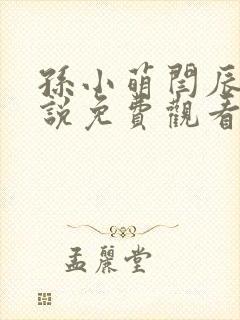 孫小萌閆辰
說免費觀看
孟麗堂